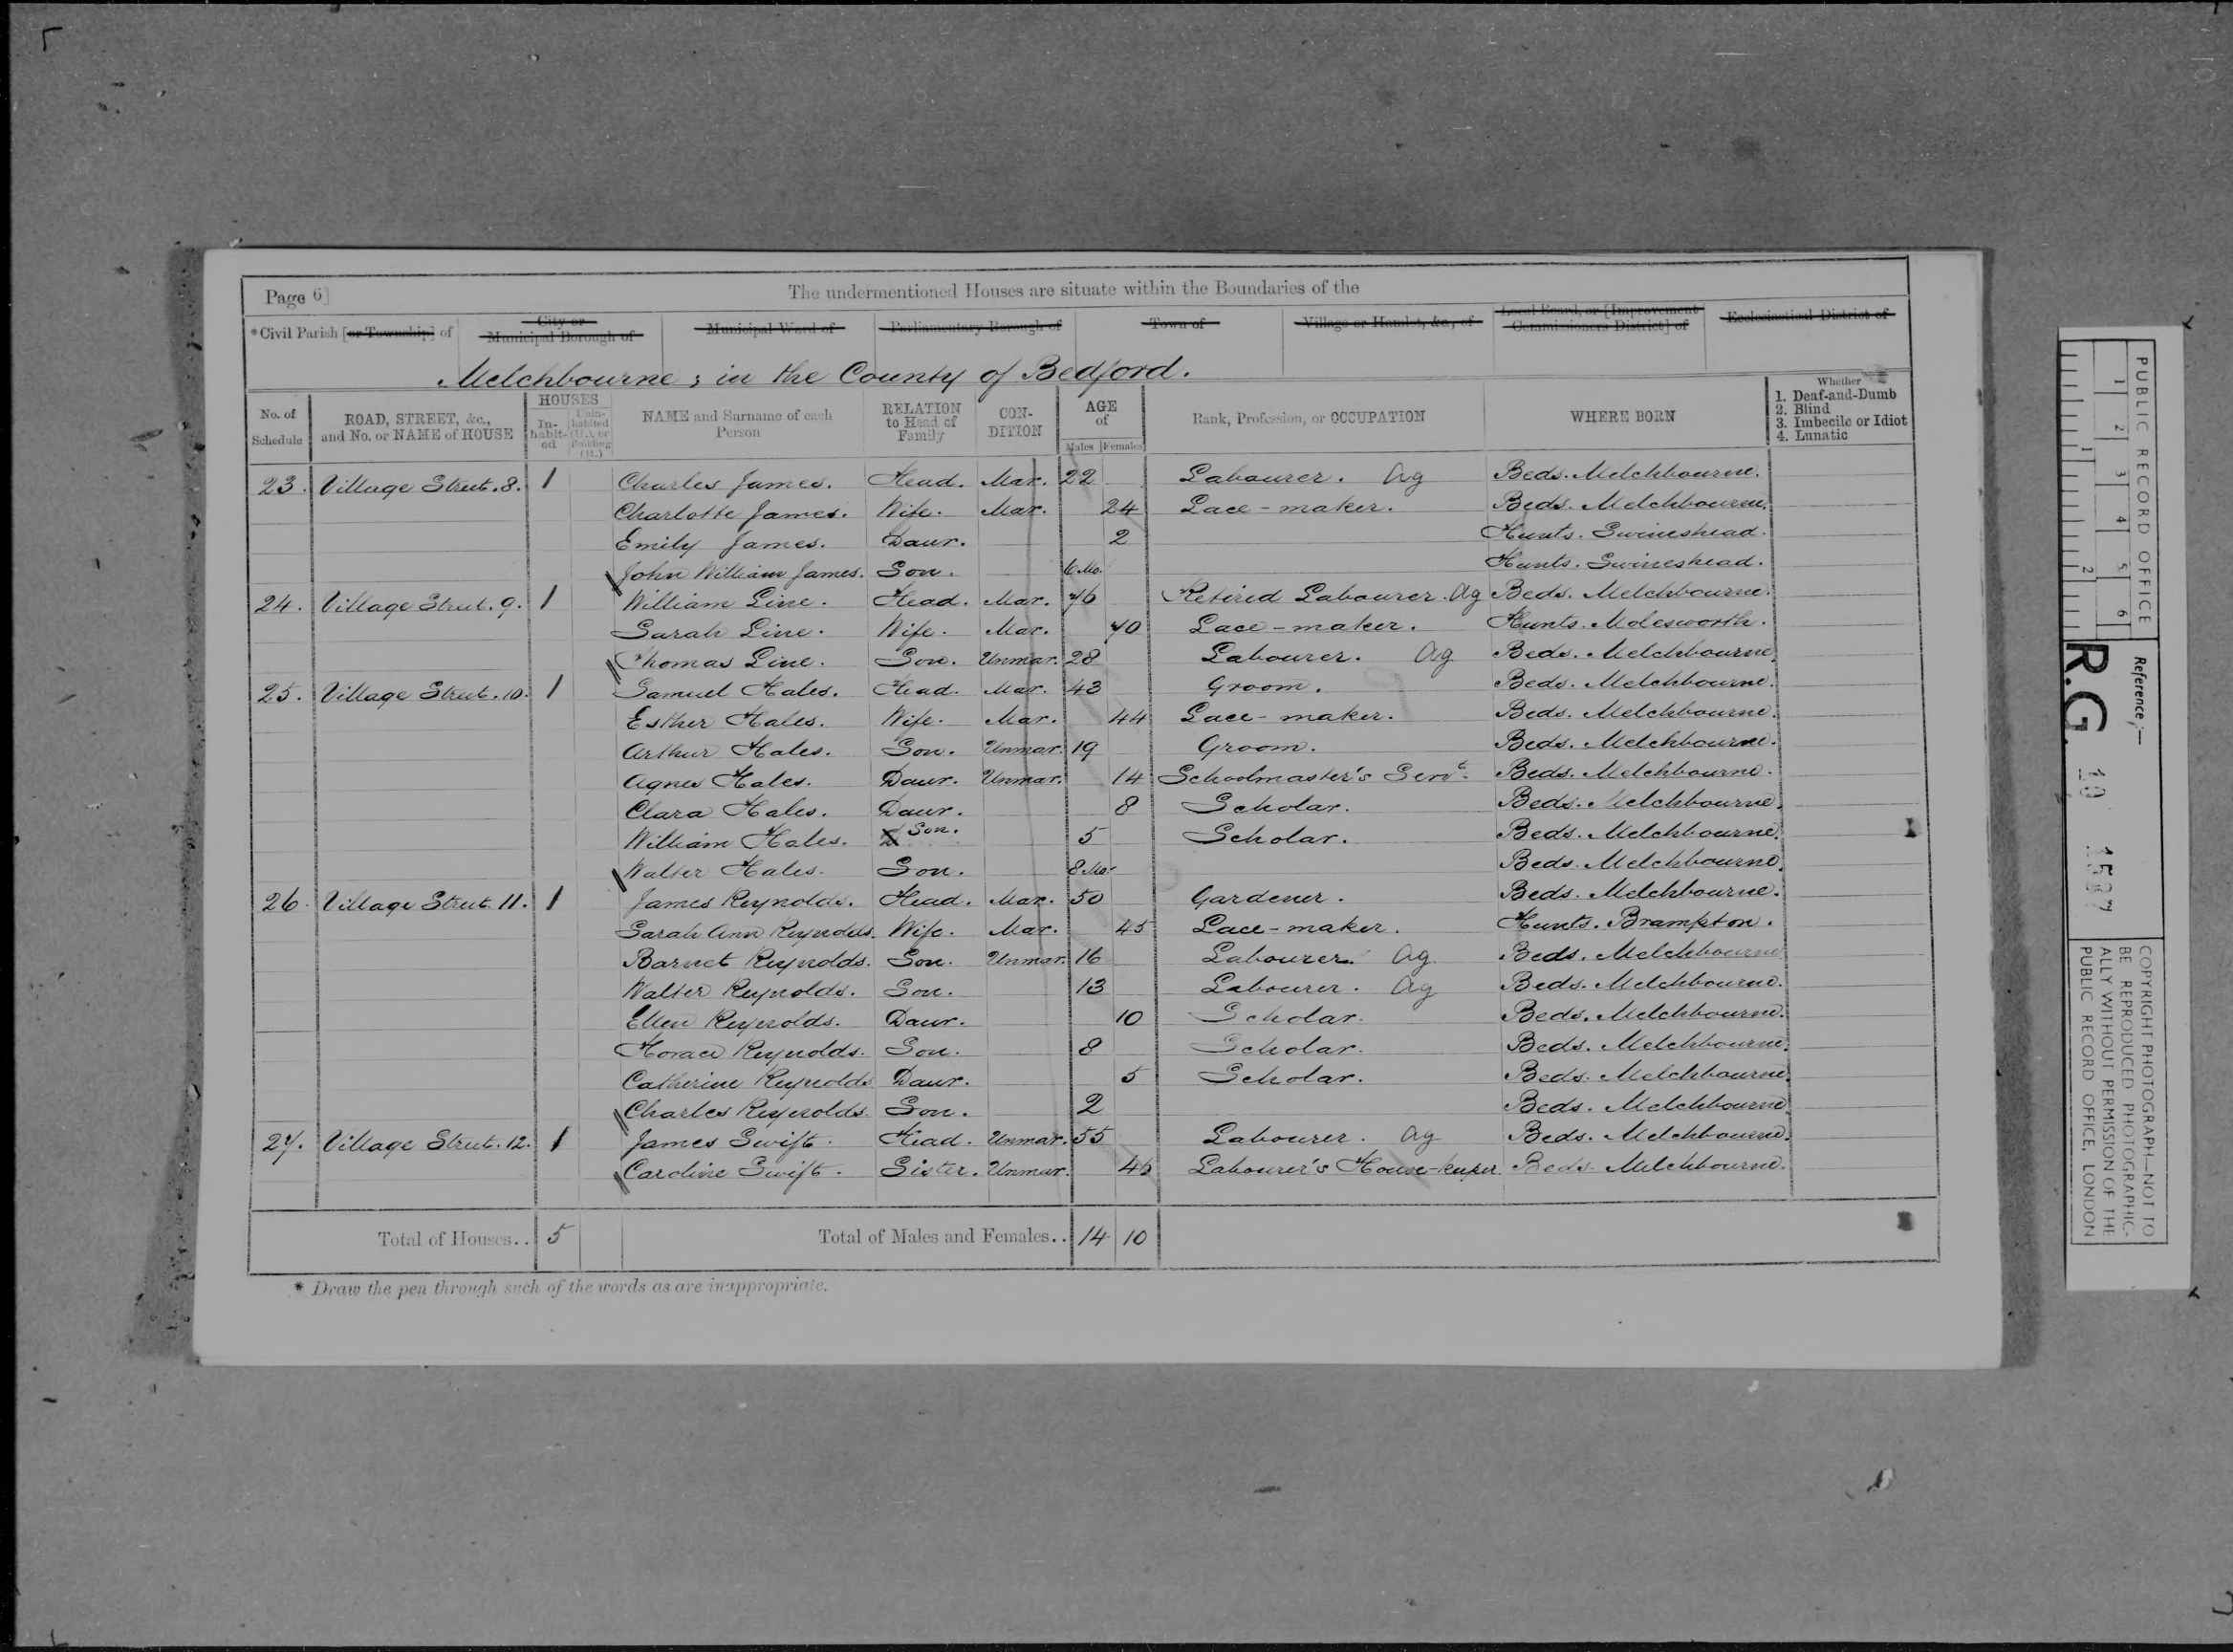 Page 6]
The undermentioned Houses are situate within the Boundaries of the
*Civil Parish [or Township] of
City or Municipal Borough of
Municipal Ward of
Parliamentary Borough of
Town of
Village or Hamlet, &c., of
Local Board, or [Improvement Commissioners District] of
Ecclesiastical District of
Melchbourne; in the County of Bedford.
No. of Schedule
ROAD, STREET, &c., and No. or NAME of HOUSE
HOUSES
In-habit-ed
Unin-habited (U.), or Building (B.)
NAME and Surname of each Person
RELATION to Head of Family
CON-DITION
AGE of
Males
Females
Rank, Profession, or OCCUPATION
WHERE BORN
Whether
1. Deaf-and-Dumb
2. Blind
3. Imbecile or Idiot
4. Lunatic
23. Village Street. 8. 1 Charles James. Head. Mar. 22 Labourer. Ag Beds. Melchbourne.
Charlotte James. Wife. Mar. 24 Lace-maker. Beds. Melchbourne.
Emily James. Daur. 2 Hunts. Swineshead.
John William James. Son. 6 Mo. Hunts. Swineshead.
24. Village Street. 9. 1 William Line. Head. Mar. 76 Retired Labourer. Ag Beds. Melchbourne.
Sarah Line. Wife. Mar. 70 Lace-maker. Hunts. Molesworth.
Thomas Line. Son. Unmar. 28 Labourer. Ag Beds. Melchbourne.
25. Village Street. 10. 1 Samuel Hales. Head. Mar. 43 Groom. Beds. Melchbourne.
Esther Hales. Wife. Mar. 44 Lace-maker. Beds. Melchbourne.
Arthur Hales. Son. Unmar. 19 Groom. Beds. Melchbourne.
Agnes Hales. Daur. Unmar. 14 Schoolmaster's Servt. Beds. Melchbourne.
Clara Hales. Daur. 8 Scholar. Beds. Melchbourne.
William Hales. Son. 5 Scholar. Beds. Melchbourne.
Walter Hales. Son. 8 Mo. Beds. Melchbourne.
26. Village Street. 11. 1 James Reynolds. Head. Mar. 50 Gardener. Beds. Melchbourne.
Sarah Ann Reynolds. Wife. Mar. 45 Lace-maker. Hunts. Brampton.
Barnet Reynolds. Son. Unmar. 16 Labourer. Ag Beds. Melchbourne
Walter Reynolds. Son. 13 Labourer. Ag Beds. Melchbourne.
Ellen Reynolds. Daur. 10 Scholar. Beds. Melchbourne.
Horace Reynolds. Son. 8 Scholar. Beds. Melchbourne.
Catherine Reynolds Daur. 5 Scholar. Beds. Melchbourne.
Charles Reynolds. Son. 2 Beds. Melchbourne.
27. Village Street. 12. 1 James Swift. Head. Unmar. 55 Labourer. Ag Beds. Melchbourne.
Caroline Swift. Sister. Unmar. 46 Labourer's House-keeper. Beds. Melchbourne.
Total of Houses.. 5
Total of Males and Females.. 14 10
* Draw the pen through such of the words as are inappropriate.
PUBLIC RECORD OFFICE
1 2 3 4 5 6
1 2
Reference:—
R.G. 10
COPYRIGHT PHOTOGRAPH—NOT TO
BE REPRODUCED PHOTOGRAPHIC-
ALLY WITHOUT PERMISSION OF THE
PUBLIC RECORD OFFICE, LONDON